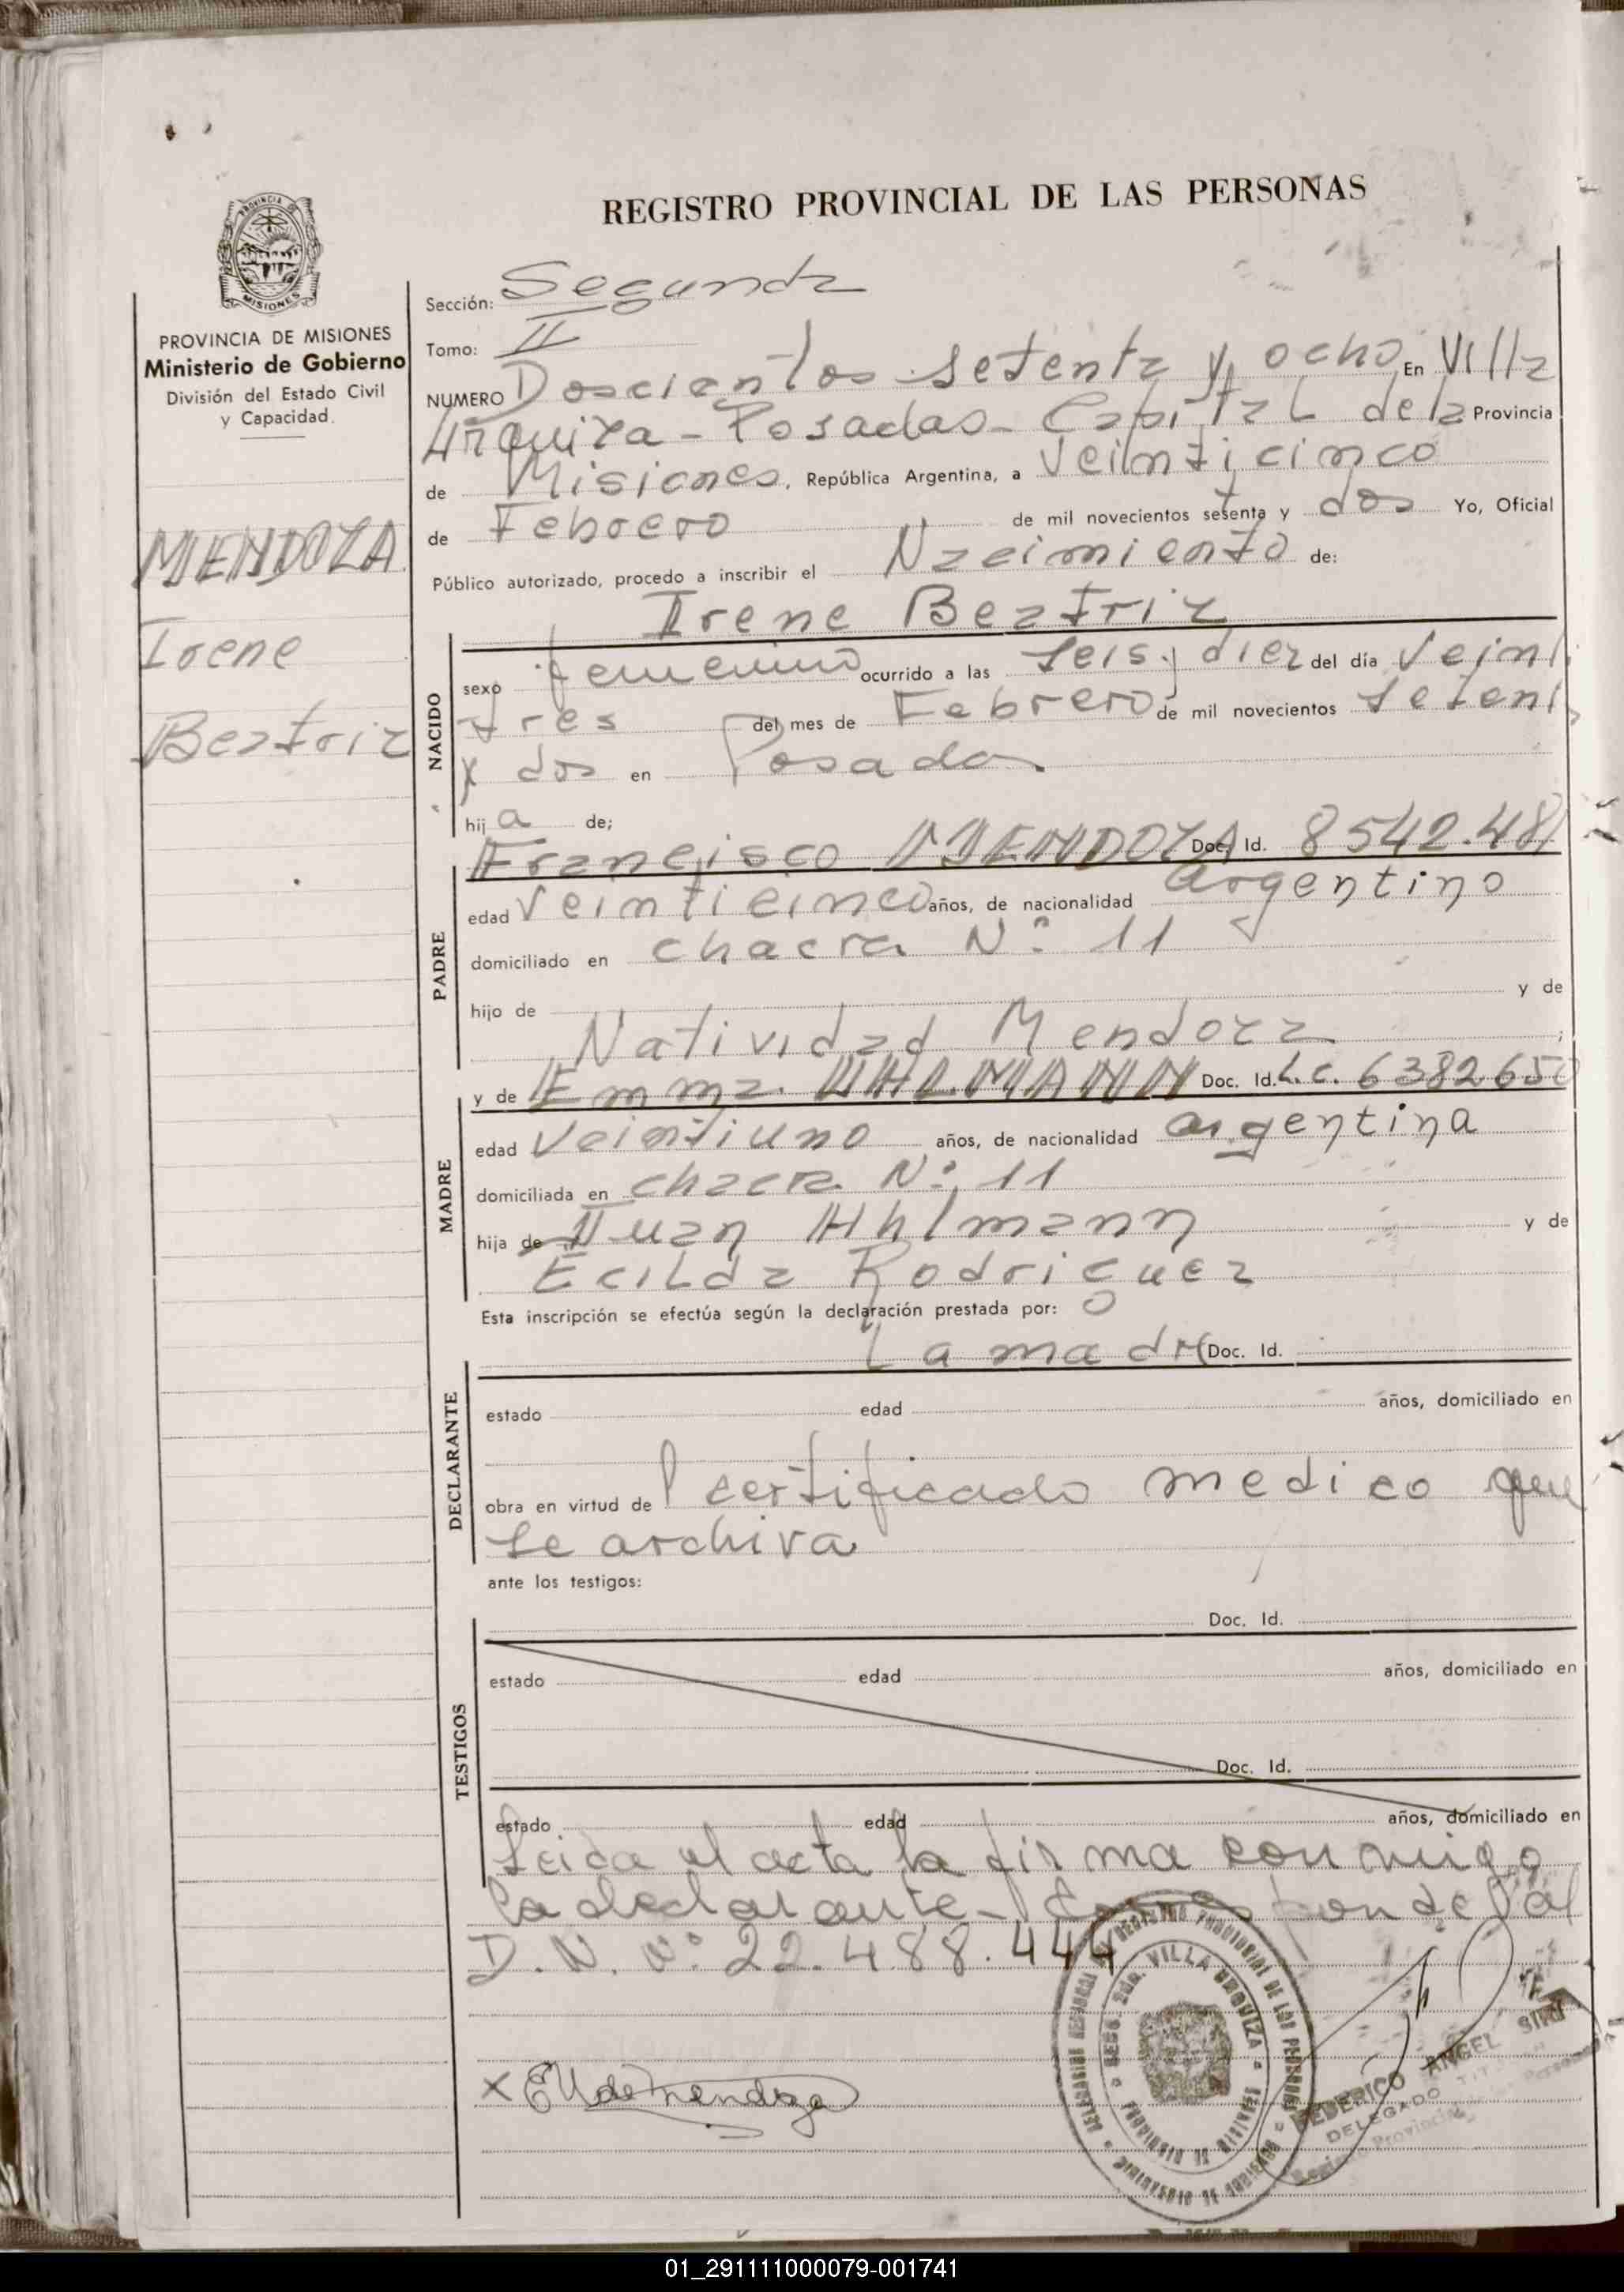 REGISTRO PROVINCIAL DE LAS PERSONAS
PROVINCIA DE
MISIONES
PROVINCIA DE MISIONES
Ministerio de Gobierno
División del Estado Civil
y Capacidad.
MENDOZA
Irene
Beatriz
Sección: Segunda
Tomo: II
NUMERO Doscientos setenta y ocho En Villa
Urquiza - Posadas - Capital de la Provincia
de Misiones, República Argentina, a Veinticinco
de Febrero de mil novecientos setenta y dos Yo, Oficial
Público autorizado, procedo a inscribir el Nacimiento de:
Irene Beatriz
NACIDO
sexo femenino ocurrido a las seis y diez del día Veinti
tres del mes de Febrero de mil novecientos setent
y dos en Posadas
hij a de;
Francisco MENDOZA Doc. Id. 8542.481
PADRE
edad Veinticinco años, de nacionalidad argentino
domiciliado en chacra Nº 11
hijo de y de
Natividad Mendoza ;
y de Emma UHLMANN Doc. Id. L.C. 6382650
MADRE
edad Veintiuno años, de nacionalidad argentina
domiciliada en chacra Nº 11
hija de Juan Uhlmann y de
Ecilda Rodriguez
Esta inscripción se efectúa según la declaración prestada por:
La madre Doc. Id.
DECLARANTE
estado edad años, domiciliado en
obra en virtud de certificado medico que
se archiva
ante los testigos:
Doc. Id.
TESTIGOS
estado edad años, domiciliado en
Doc. Id.
estado edad años, domiciliado en
Leida el acta la firma conmigo
la declarante - al
D. N. Nº 22.488.444
VILLA URQUIZA
x EUdeMendoza
FEDERICO ANGEL
DELEGADO
01_291111000079-001741